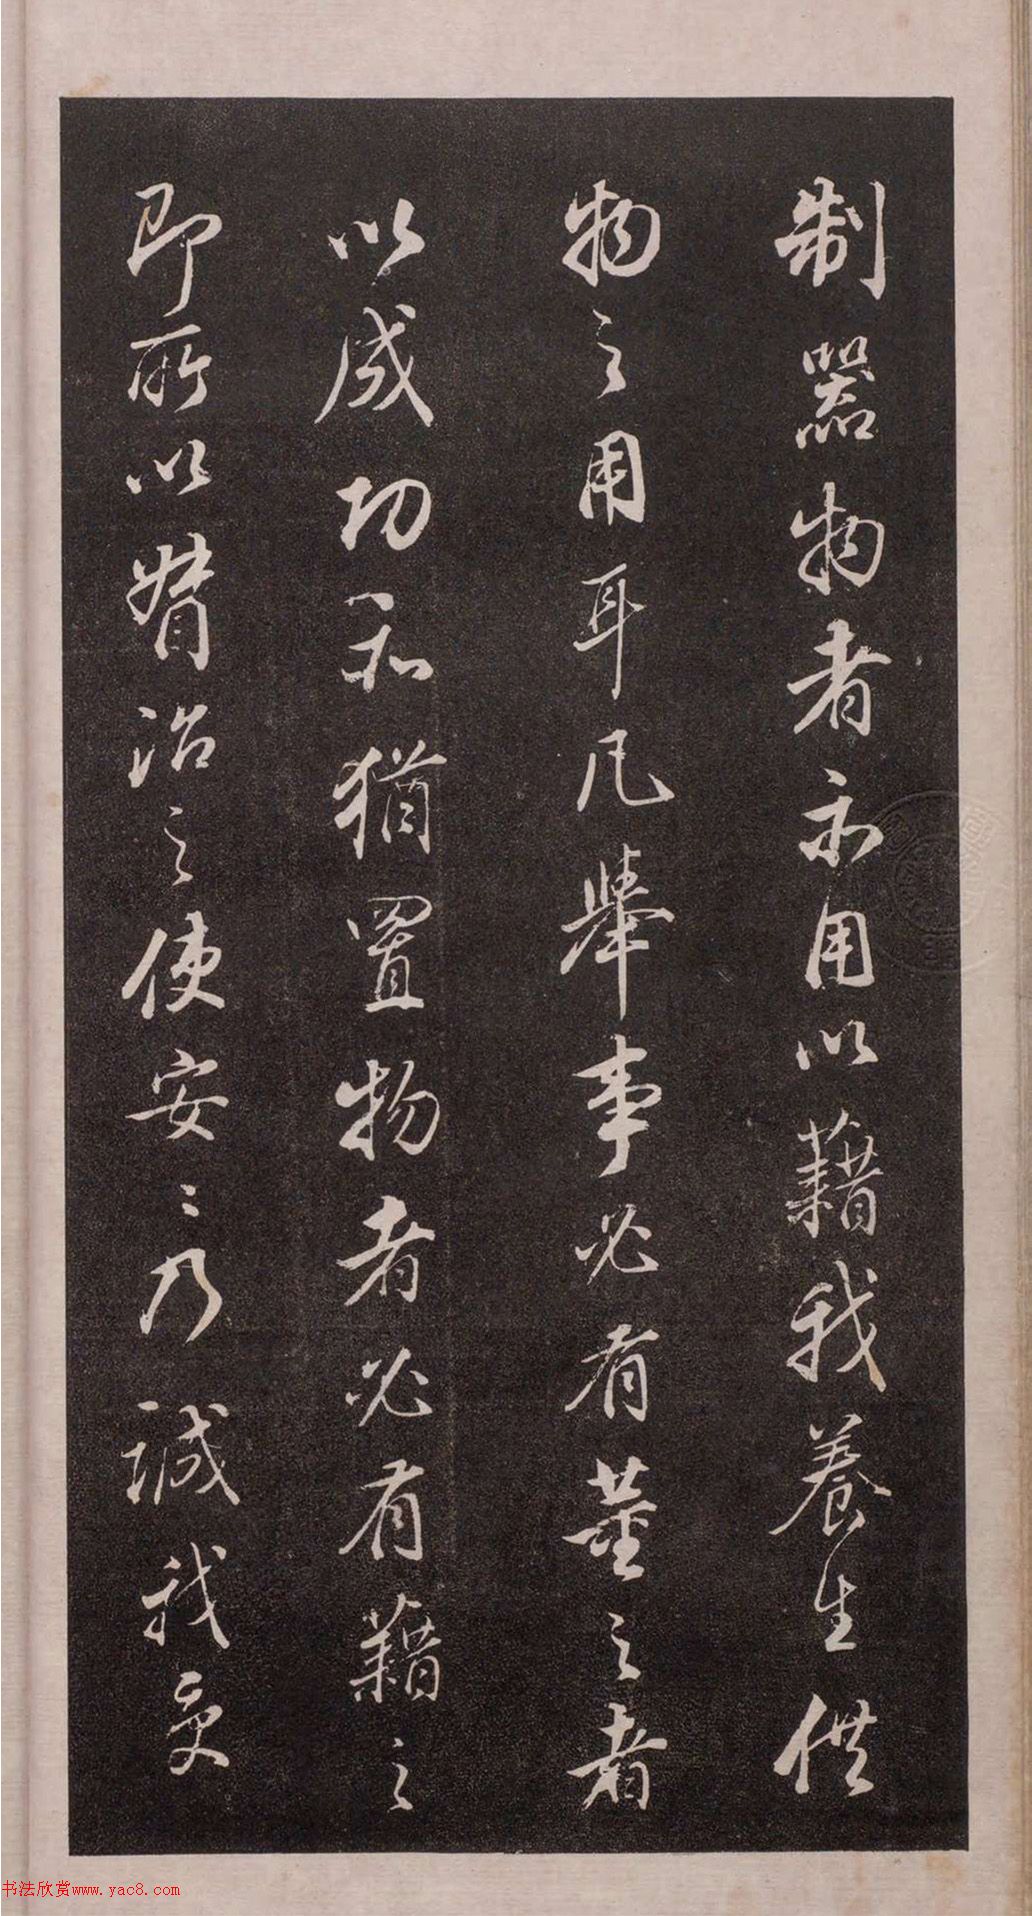 制器物者亦用以藉我養生供
物之用耳凡舉事必有董之者
以成功也猶置物者必有藉之
即所以督治之使安〻乃誠我受
书法欣赏www.yac8.com